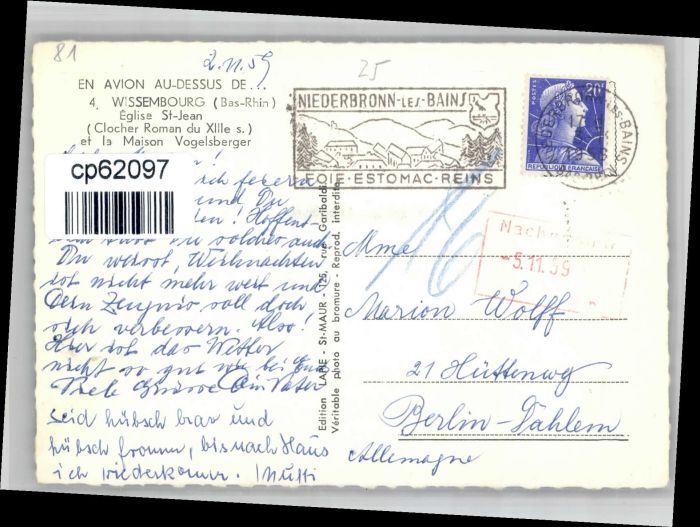 81
2.11.59
25
EN AVION AU-DESSUS DE...
4. WISSEMBOURG (Bas-Rhin)
Église St-Jean
(Clocher Roman du XIIIe s.)
et la Maison Vogelsberger
cp62097
NIEDERBRONN-LES-BAINS
FOIE-ESTOMAC-REINS
POSTES
20F
REPUBLIQUE FRANÇAISE
feiern
und Du
! Hoffent-
Du solches auch
Du weisst, Weihnachten
ist nicht mehr weit und
Dein Zeugnis soll doch
sich verbessern. Also!
Hier ist das Wetter
nicht so gut wie bei Euch
Viele Grüsse Dein Vater
Seid hübsch brav und
hübsch fromm, bis nach Haus
ich wiederkomm. Mutti
Edition LAPIE - St-MAUR - 125, rue Garibaldi
Véritable photo au bromure - Reprod. interdite
16
-5.11.59
Mme
Marion Wolff
21 Hüttenweg
Berlin-Dahlem
Allemagne